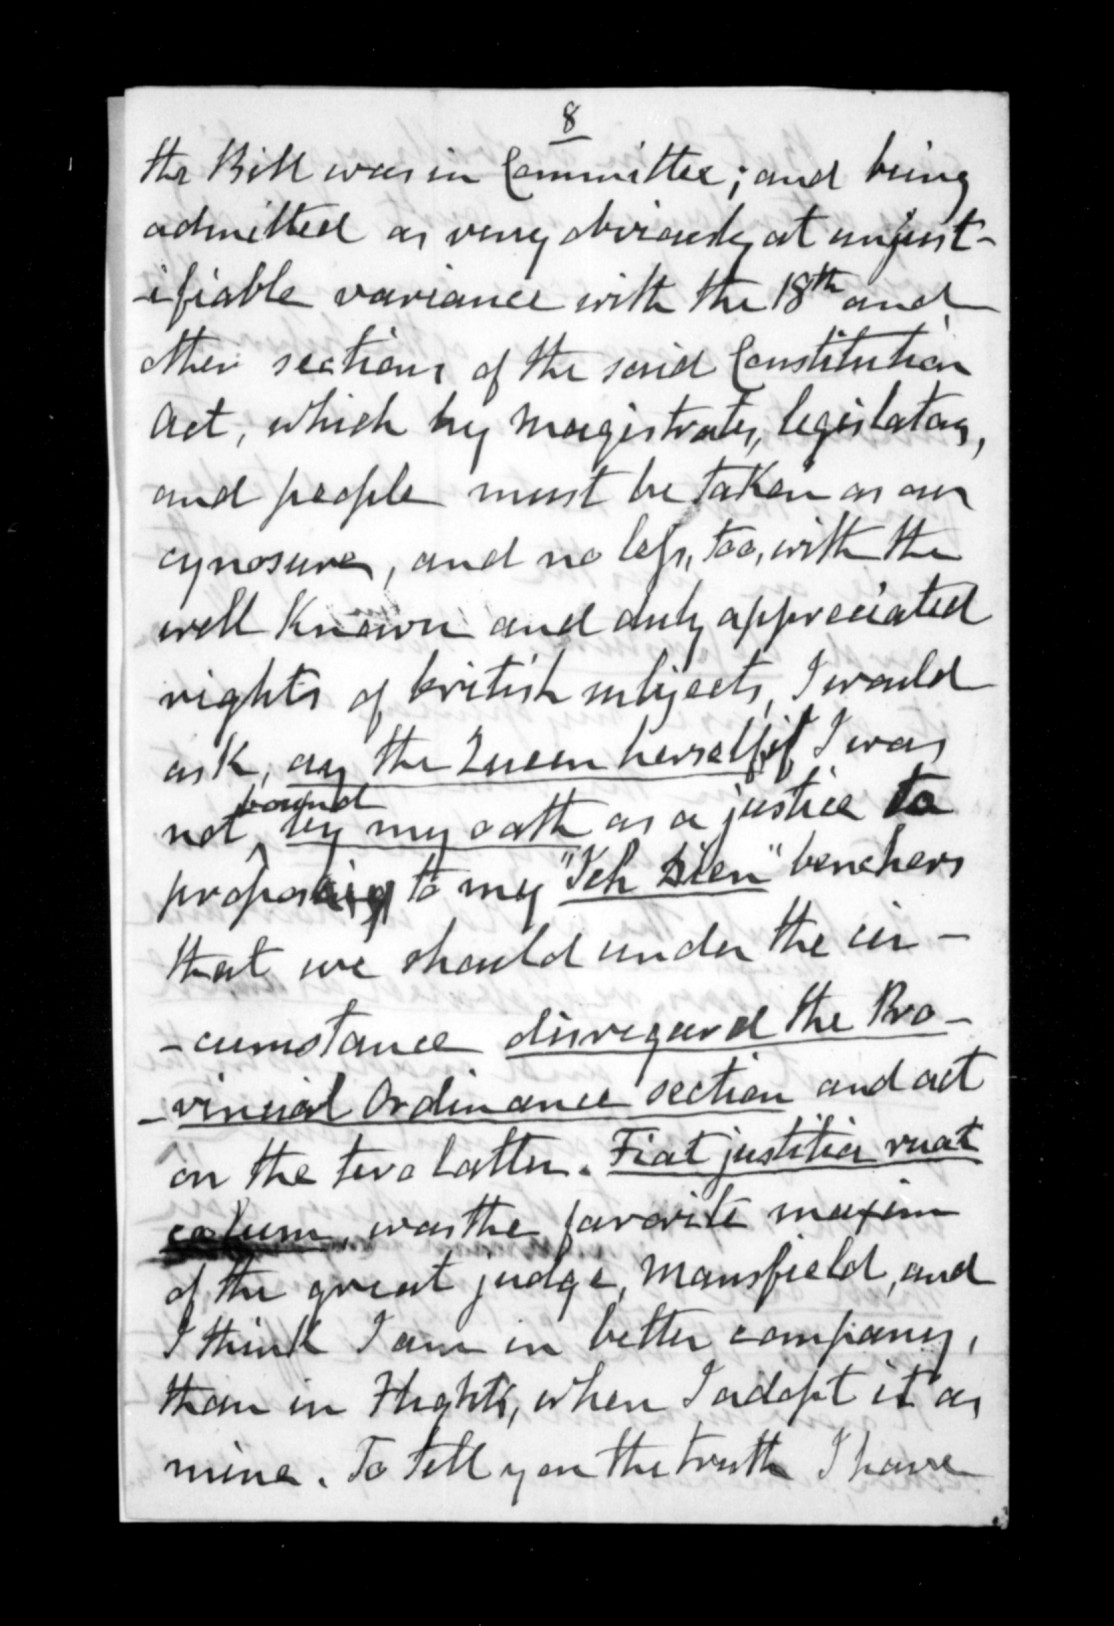 8
the Bill was in Committee; and being
admitted as very obviously at unjust-
-ifiable variance with the 18th and
other sections of the said Constitution
Act, which by Magistrates, legislators,
and people must be taken as our
cynosure, and no less, too, with the
well known and duly appreciated
rights of british subjects, I would
ask, ay the Queen herself, if I was
not bound by my oath as a justice to
proposing to my "Ich Dien" benchers
that we should under the cir-
-cumstance disregard the Pro-
-vincial Ordinance section and act
on the two latter. Fiat justitia ruat
coelum, was the favorite maxim
of the great judge, Mansfield, and
I think I am in better company,
than in Hights, when I adopt it as
mine. To tell you the truth I have